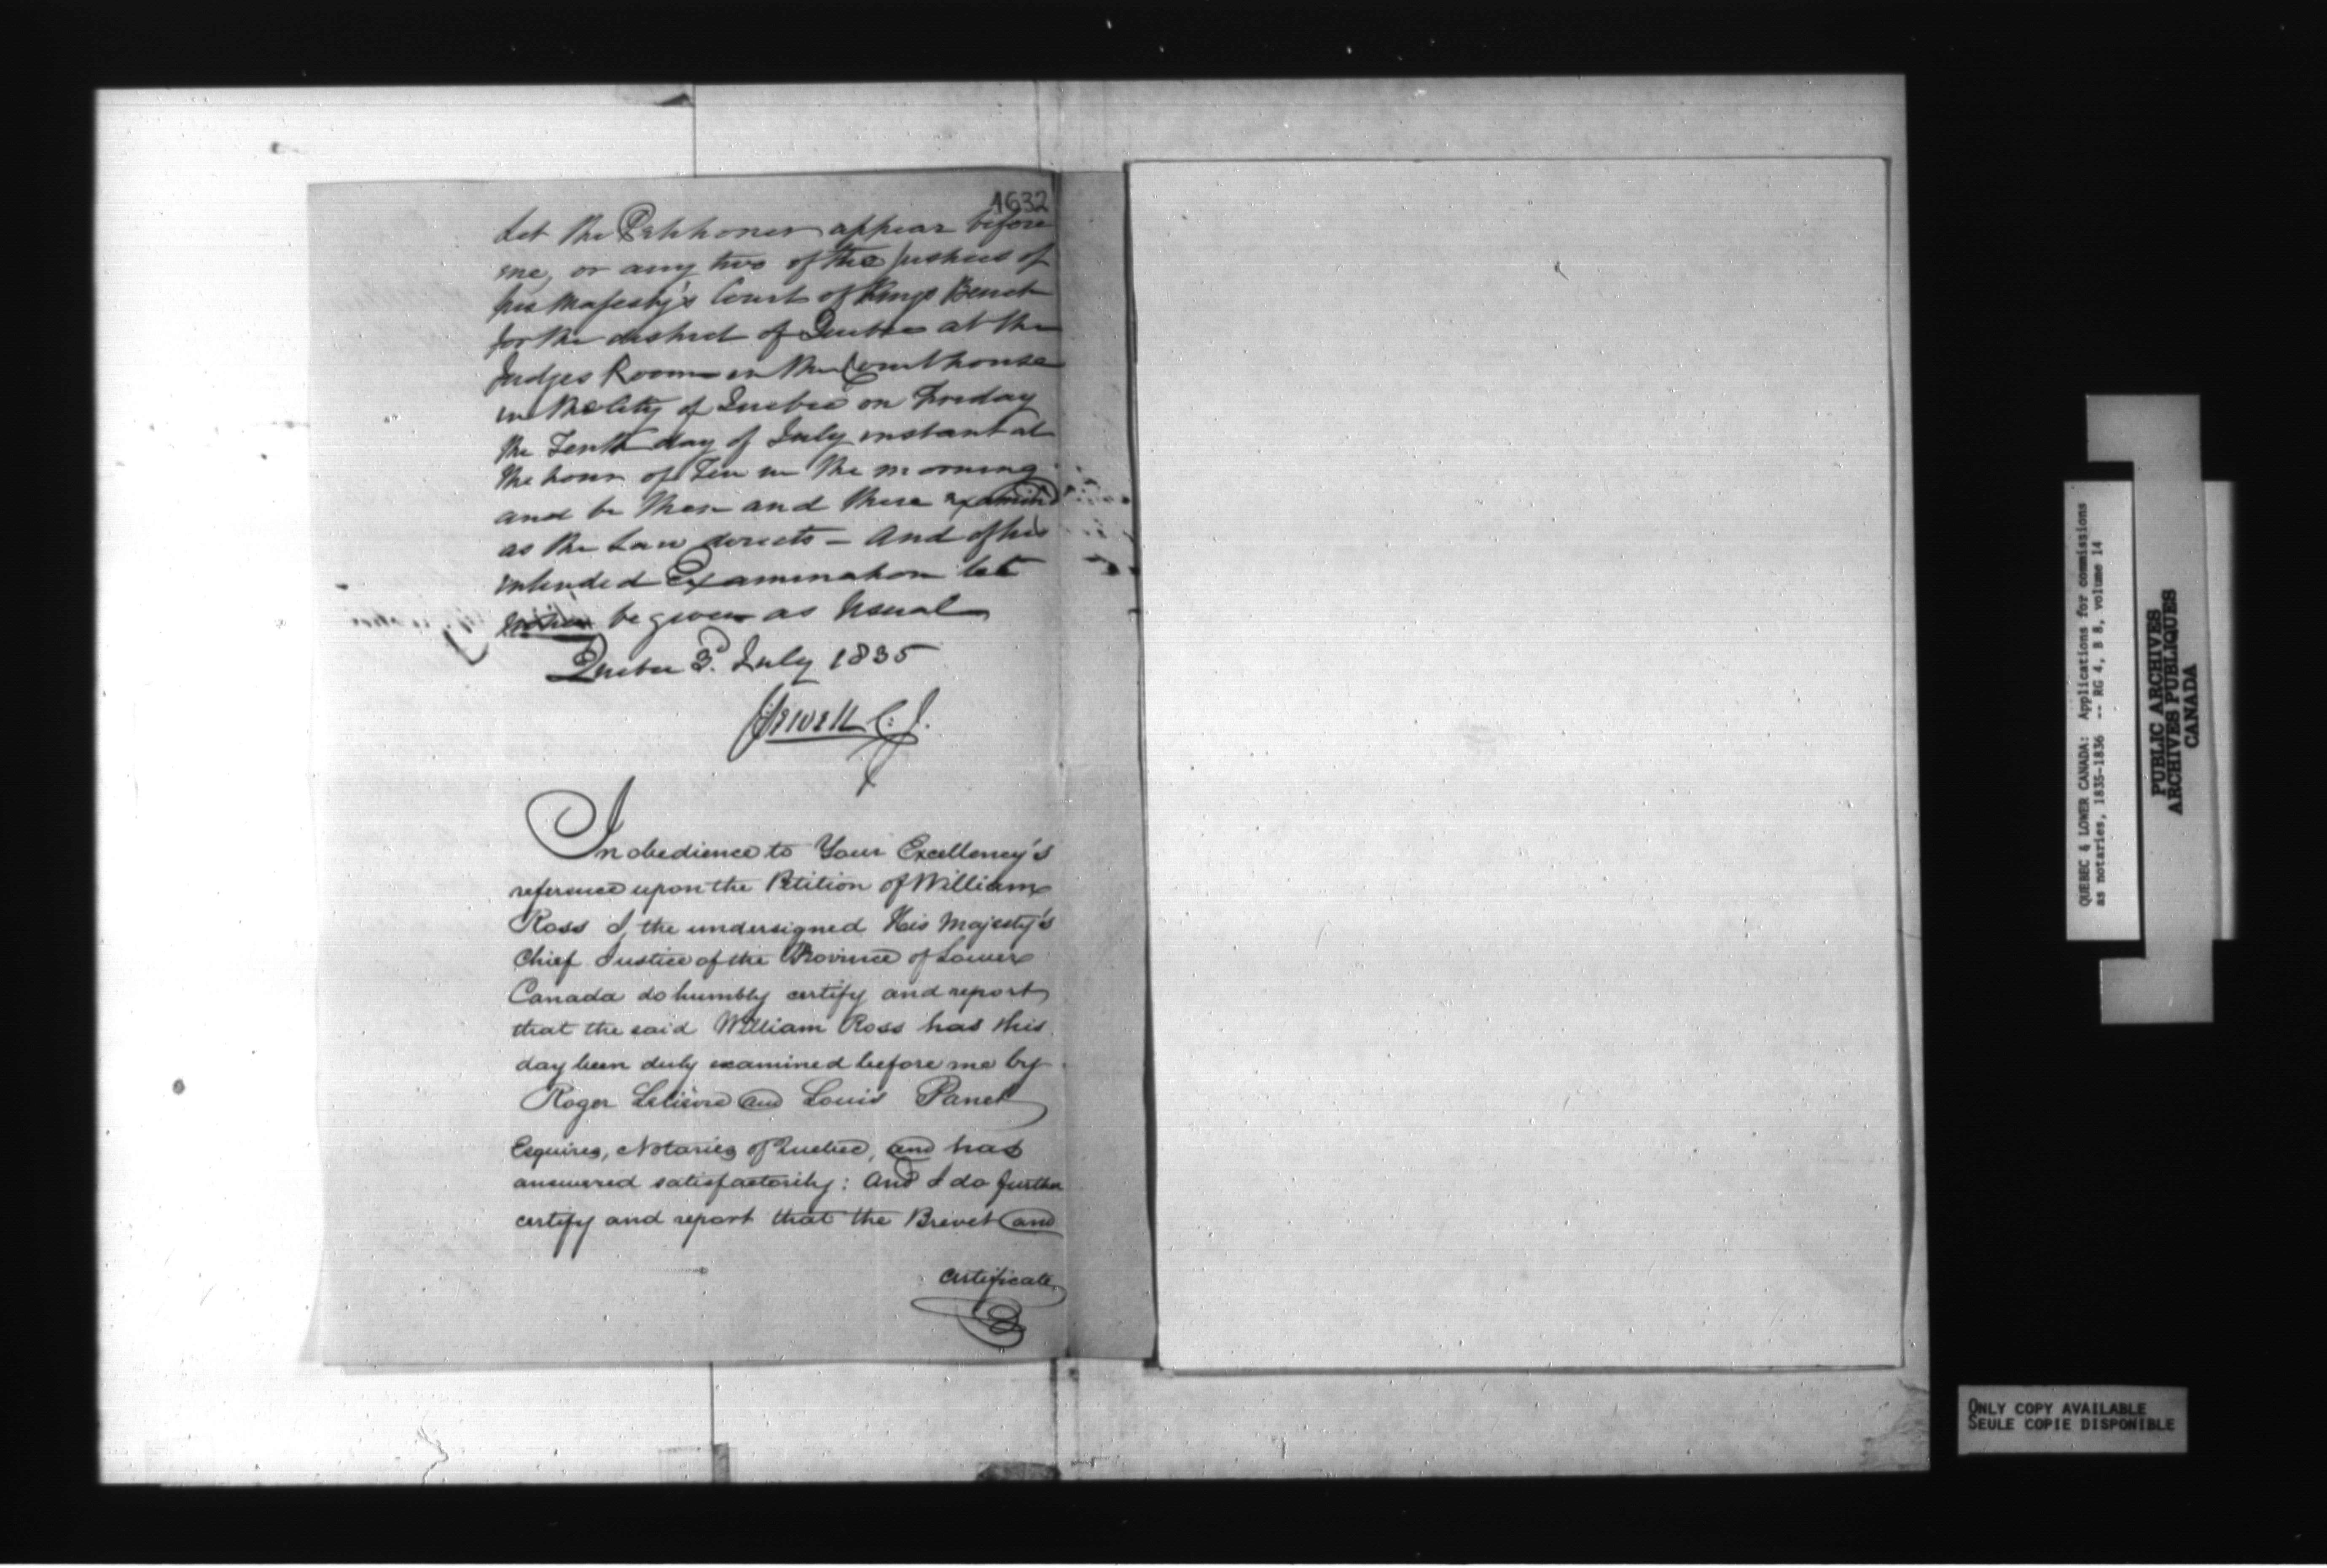 1632
Let the Petitioner appear before
me, or any two of the Justices of
his Majesty's Court of Kings Bench
for the district of Quebec at the
Judges Room in the Courthouse
in the City of Quebec on Friday
the Tenth day of July instant at
the hour of Ten in the morning
and be then and there examined
as the Law directs – And of his
intended Examination let
notice be given as Usual
Quebec 3d. July 1835
JSewell C: J.
In obedience to Your Excellency's
reference upon the Petition of William
Ross I, the undersigned His Majesty's
Chief Justice of the Province of Lower
Canada do humbly certify and report
that the said William Ross has this
day been duly examined before me by
Roger Lelièvre and Louis Panet
Esquires, Notaries of Quebec, and has
answered satisfactorily: And I do further
certify and report that the Brevet and
certificate
QUEBEC & LOWER CANADA: Applications for commissions
as notaries, 1835-1836 -- RG 4, B 8, volume 14
PUBLIC ARCHIVES
ARCHIVES PUBLIQUES
CANADA
ONLY COPY AVAILABLE
SEULE COPIE DISPONIBLE